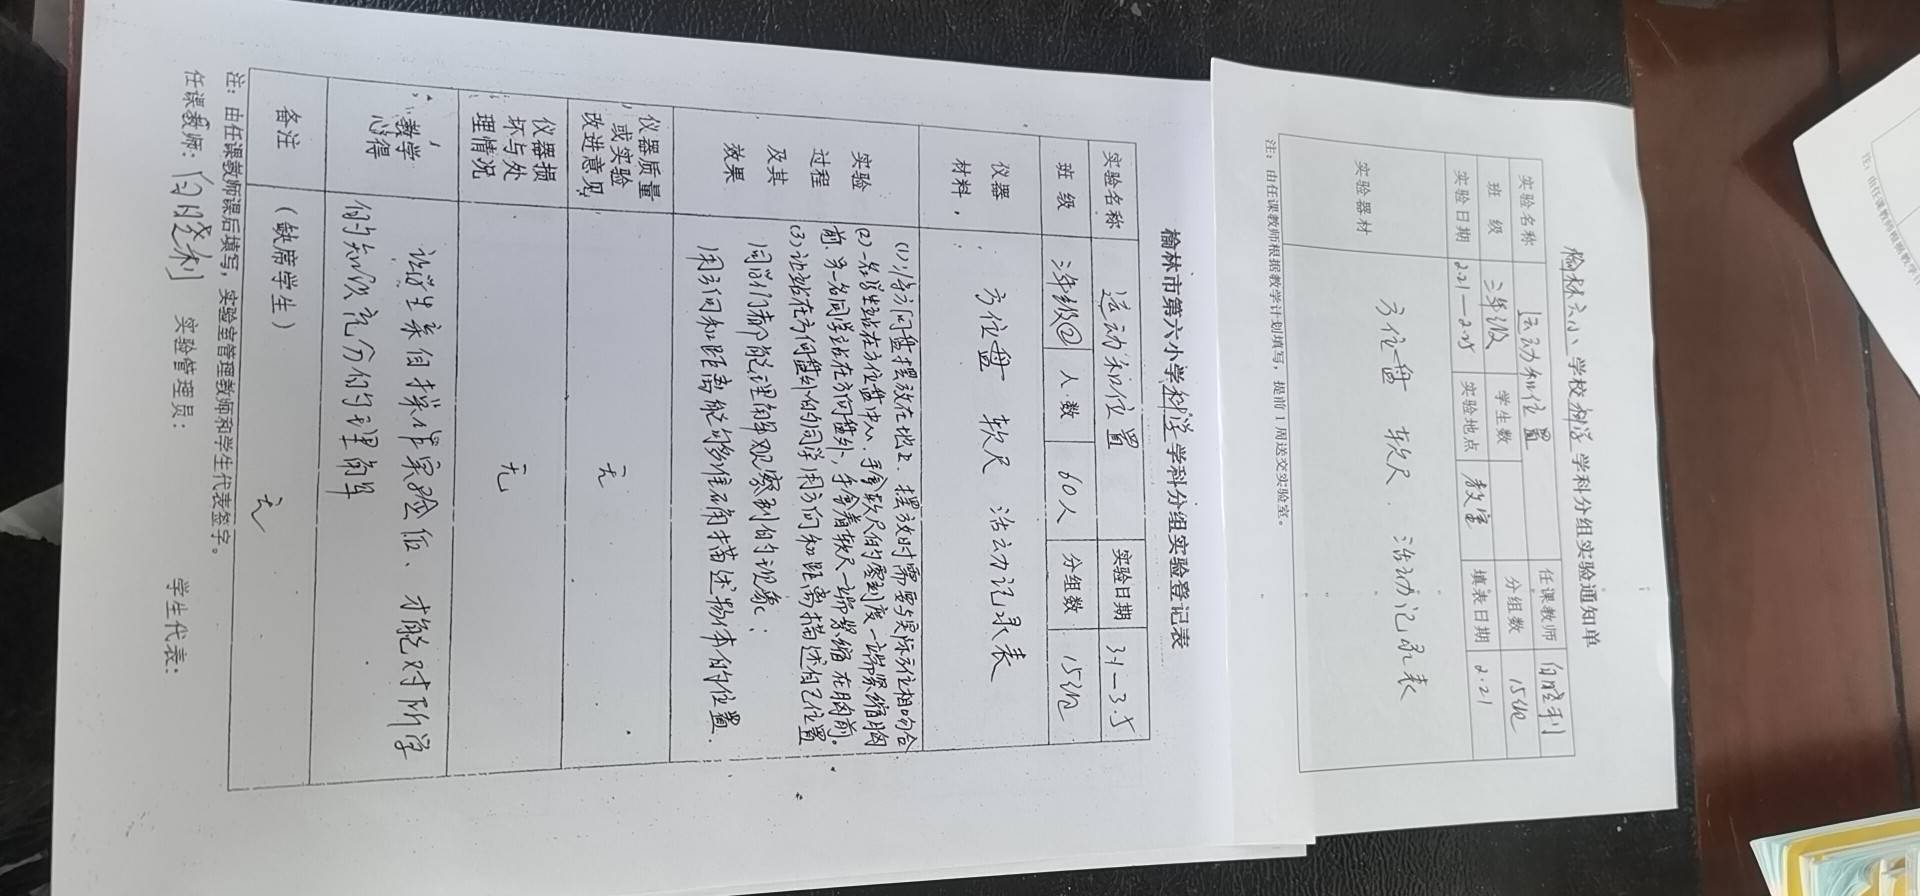 榆林六小 学校科学学科分组实验通知单
实验名称 运动和位置 任课教师 白晓利
班 级 三年级 学生数 分组数 15组
实验日期 2.21—2.25 实验地点 教室 填表日期 2.21
实验器材 方位盘 软尺 活动记录表
注：由任课教师根据教学计划填写，提前1周送交实验室。
榆林市第六小学科学学科分组实验登记表
实验名称 运动和位置 实验日期 3.1—3.5
班 级 三年级② 人数 60人 分组数 15组
仪器
材料
方位盘 软尺 活动记录表
实验
过程
及其
效果
(1)将方向盘摆放在地上、摆放时需要与实际方位相吻合
(2)一名学生站在方位盘中心、手拿软尺的零刻度一端紧缩胸
前另一名同学站在方向盘外，手拿着软尺一端紧缩在胸前。
(3)让站在方向盘外的同学用方向和距离描述自己位置
同学们都能理解观察到的现象；
用方向和距离能够准确描述物体的位置.
仪器质量
或实验
改进意见
无
仪器损
坏与处
理情况
无
教学
心得
让学生亲自操作实验后、才能对所学
的知识充分的理解
备注
(缺席学生)
无
注：由任课教师课后填写，实验室管理教师和学生代表签字。
任课教师：白晓利 实验管理员： 学生代表：